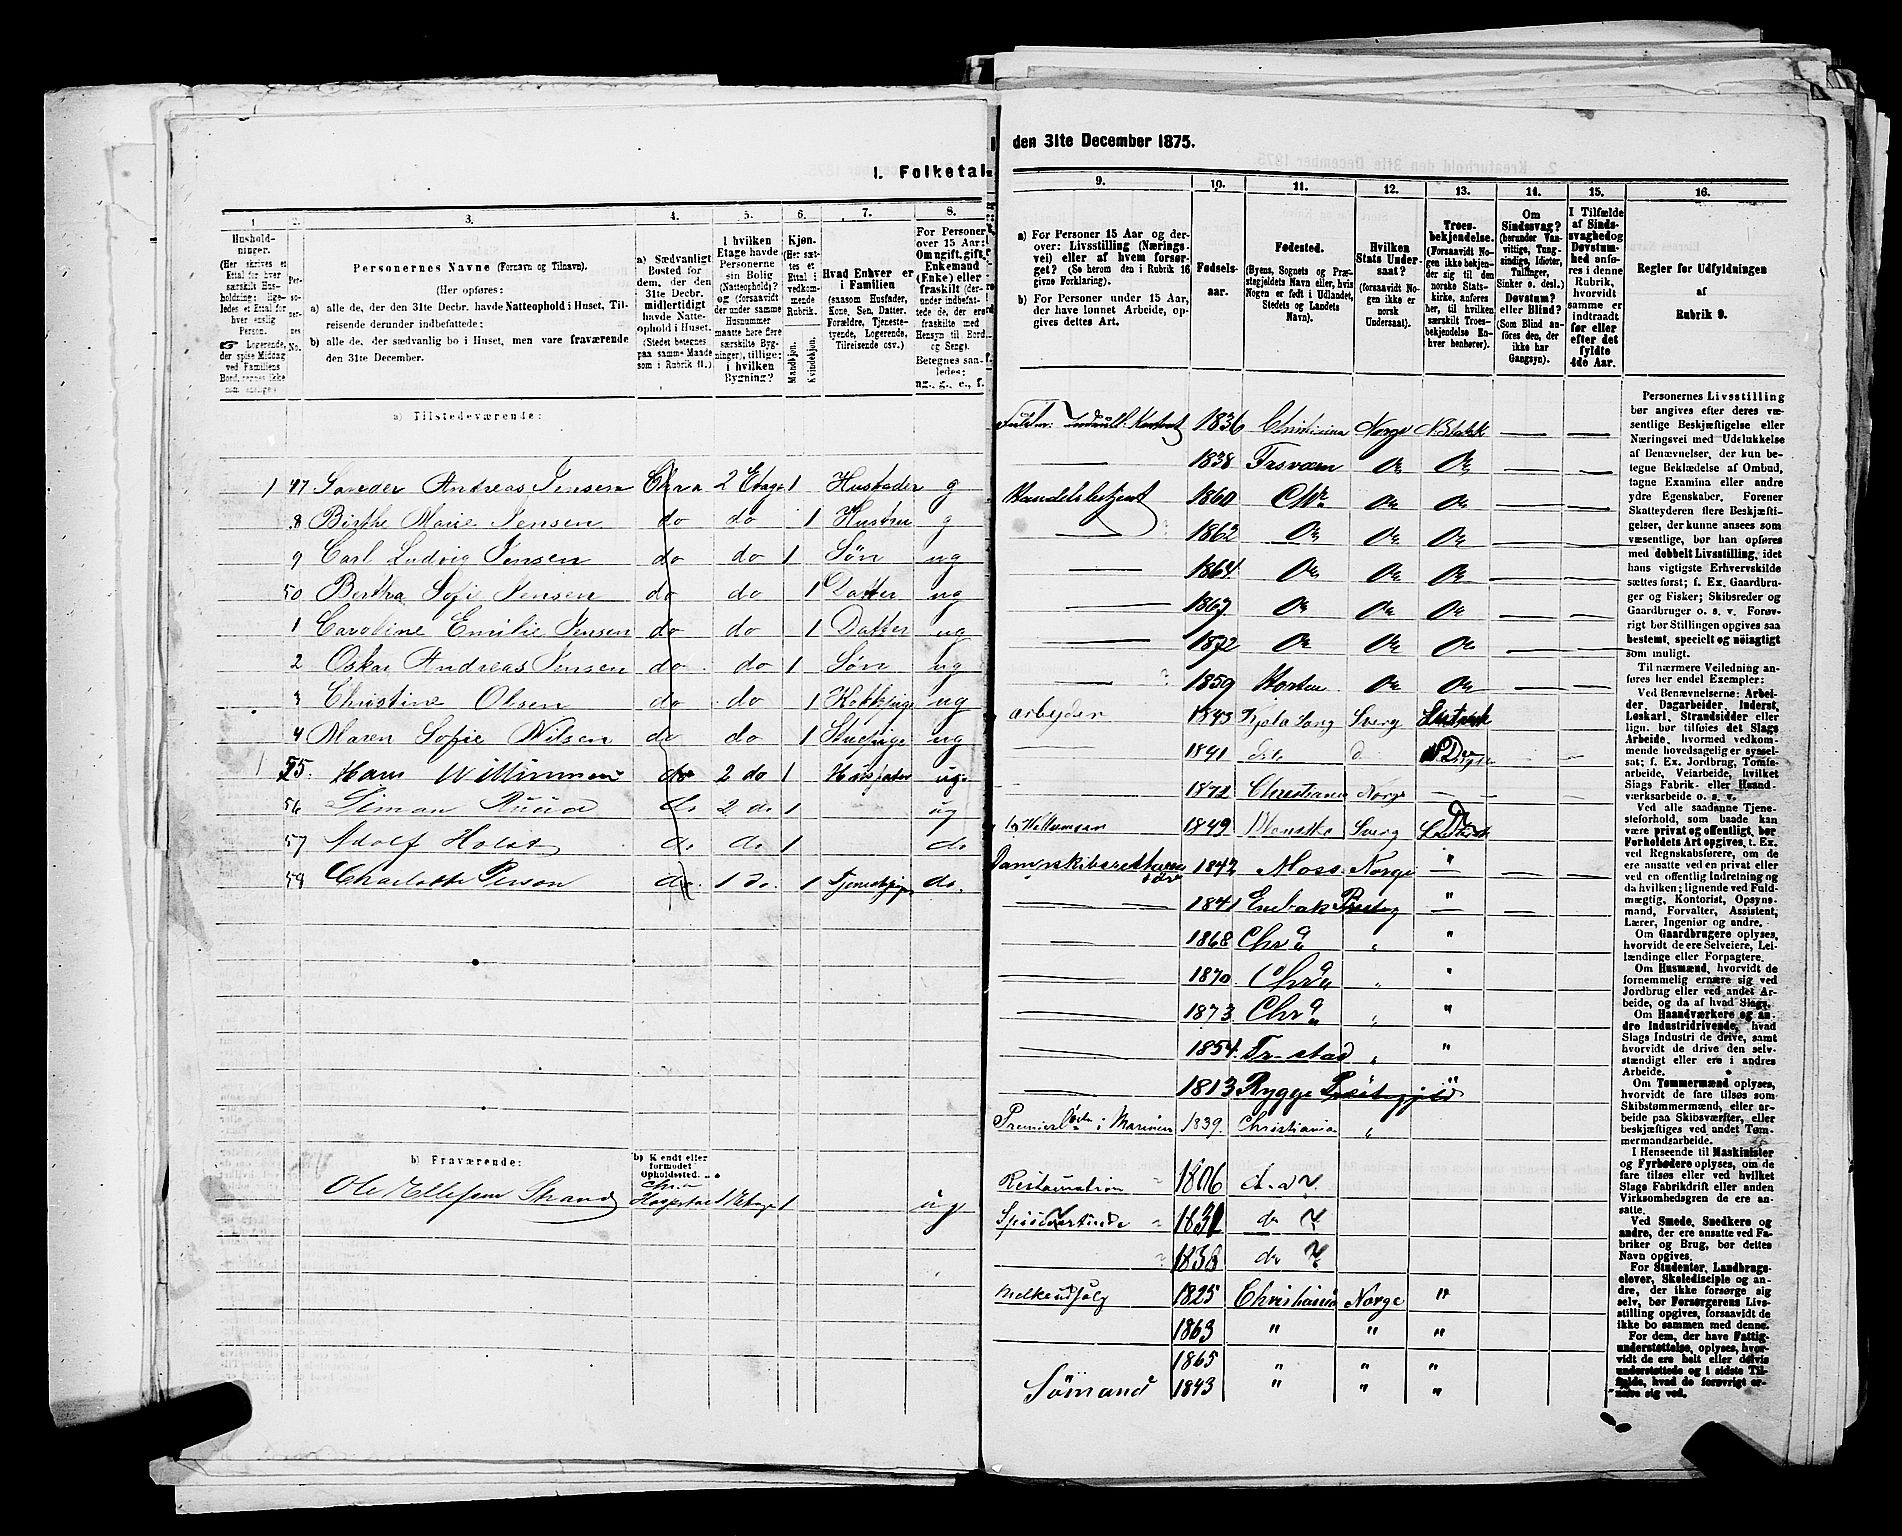 I. Folketal
1.
2.
3.
4.
5.
6.
7.
8.
Hushold-
ninger.
(Her skrives et
Ettal for hver
særskilt Hus-
holdning; lige-
ledes et Ettal
for hver
enslig
Person.
Logerende,
der spise Middag
ved Familiens
Bord, regnes ikke
som enslige.)
Per-
so-
ner-
nes
No.
Personernes Navne (Fornavn og Tilnavn).
(Her opføres:
a) alle de, der den 31te Decbr. havde Natteophold i Huset, Til-
reisende derunder indbefattede;
b) alle de, der sædvanlig bo i Huset, men vare fraværende
den 31te December.
a) Sædvanligt
Bosted for
dem, der den
31te Decbr.
midlertidigt
havde Natte-
ophold i Huset.
(Stedet betegnes
paa samme Maade
som i Rubrik 11.)
I hvilken
Etage havde
Personerne
sin Bolig
(Natteophold)?
og (forsaavidt
der under samme
Husnummer
maatte høre flere
særskilte Byg-
ninger), tillige:
i hvilken
Bygning?
Kjøn.
(Her sæt-
tes et
Ettal i
vedkom-
mende
Rubrik.)
Mandkjøn.
Kvindekjøn.
Hvad Enhver er
i Familien
(saasom Husfader,
Kone, Søn, Datter,
Forældre, Tjeneste-
tyende, Logerende,
Tilreisende osv.)
For Personer
over 15 Aar:
Om ugift, gift,
Enkemand
(Enke) eller
fraskilt (der-
under indbefat-
tede de, der ere
fraskilte med
Hensyn til Bord
og Seng).
Betegnes saa-
ledes:
ug., g., e., f.
a) Tilstedeværende:
1 47 Andreas Jensen Chra 2 Etage 1 Husfader g
8 Birthe Marie Jensen do do 1 Hustru g
9 Carl Ludvig Jensen do do 1 Søn ug
50 Bertha Sofie Jensen do do 1 Datter ug
1 Caroline Emilie Jensen do do 1 Datter ug
2 Oskar Andreas Jensen do do 1 Søn ug
3 Christine Olsen do do 1 Kokkepige ug
4 Maren Sofie Nilsen do do 1 Stuepige ug
1 55. Hans do 2 do 1 Husfader ug.
56 Simon Ruud do 2 do 1 ug
57 Adolf Holst do do 1 do
58 Charlotte Person do. 1 do. 1 Tjenestepige do.
b) Fraværende:
b) Kjendt eller
formodet
Opholdssted.
Ole Ellefsen Strand Chra Hospital 1 Etage 1 ug
den 31te December 1875.
9.
10.
11.
12.
13.
14.
15.
16.
a) For Personer 15 Aar og der-
over: Livsstilling (Nærings-
vei) eller af hvem forsør-
get? (Se herom den i Rubrik 16
givne Forklaring).
b) For Personer under 15 Aar,
der have lønnet Arbeide, op-
gives dettes Art.
Fødsels-
aar.
Fødested.
(Byens, Sognets og Præ-
stegjeldets Navn eller, hvis
Nogen er født i Udlandet,
Stedets og Landets
Navn).
Hvilken
Stats Under-
saat?
(forsaavidt No-
gen ikke er
norsk
Undersaat).
Troes-
bekjendelse.
(Forsaavidt No-
gen ikke bekjen-
der sig til den
norske Stats-
kirke, anføres
her, til hvilken
særskilt Troes-
bekjendelse En-
hver henhører).
Om
Sindssvag?
(herunder Van-
vittige, Tung-
sindige, Idioter,
Tullinger,
Sinker o. desl.)
Døvstum?
eller Blind?
(Som Blind an-
føres den, der
ikke har
Gangsyn).
I Tilfælde
af Sinds-
svaghed og
Døvstum-
hed anfø-
res i denne
Rubrik,
hvorvidt
samme er
indtraadt
før eller
efter det
fyldte
4de Aar.
Regler for Udfyldningen
af
Rubrik 9.
1836 Christiania Norge — —
— 1838 do do — —
Handelsbetjent 1860 Chra do do — —
— 1862 do do do — —
— 1864 do do do — —
— 1867 do do do — —
— 1872 do do do — —
— 1859 Horten do do — —
arbeyder 1843 Sverg
— 1841 d
— 1872 Christiania Norge
1849 Sverg
1842 Moss Norge "
— 1841 Enebak Præsteg — "
— 1868 Chr a „ "
— 1870 Chr a „ "
— 1873 Chr a „ "
— 1854 Fr-stad „ "
— 1813 Rygge Præstegjeld "
i Marinen 1839. Christiania „
Restauration 1806
1831 do
1838 do
Melkeudsalg 1825 Christiania Norge "
1863 " " "
1865 " " "
Sømand 1843 " " "
Personernes Livsstilling
bør angives efter deres væ-
sentlige Beskjæftigelse eller
Næringsvei med Udelukkelse
af Benævnelser, der kun be-
tegne Beklædelse af Ombud,
tagne Examina eller andre
ydre Egenskaber. Forener
Skatteyderen flere Beskjæfti-
gelser, der kunne ansees som
væsentlige, bør han opføres
med dobbelt Livsstilling, idet
hans vigtigste Erhvervskilde
sættes først; f. Ex. Gaardbru-
ger og Fisker; Skibsreder og
Gaardbruger o. s. v. Forøv-
rigt bør Stillingen opgives saa
bestemt, specielt og nøiagtigt
som muligt.
Til nærmere Veiledning an-
føres her endel Exempler:
Ved Benævnelserne: Arbei-
der, Dagarbeider, Inderst,
Løskarl, Strandsidder eller
lign. bør tilføies det Slags
Arbeide, hvormed vedkom-
mende hovedsagelig er syssel-
sat; f. Ex. Jordbrug, Tomte-
arbeide, Veiarbeide, hvilket
Slags Fabrik- eller Haand-
værksarbeide o. s. v.
Ved alle saadanne Tjene-
steforhold, som baade kan
være privat og offentligt, bør
Forholdets Art opgives, t. Ex.
ved Regnskabsførere, om de
ere ansatte ved en privat eller
ved en offentlig Indretning og
da hvilken; lignende ved Fuld-
mægtig, Kontorist, Opsyns-
mand, Forvalter, Assistent,
Lærer, Ingeniør og andre.
Om Gaardbrugere oplyses,
hvorvidt de ere Selveiere, Lei-
lændinge eller Forpagtere.
Om Husmænd, hvorvidt de
fornemmelig ernære sig ved
Jordbrug eller ved andet Ar-
beide, og da af hvad Slags.
Om Haandværkere og an-
dre Industridrivende, hvad
Slags Industri de drive, samt
hvorvidt de drive den selv-
stændigt eller ere i andres
Arbeide.
Om Tømmermænd oplyses,
hvorvidt de fare tilsøs som
Skibstømmermænd, eller ar-
beide paa Skibsværfter, eller
beskjæftiges ved andet Tøm-
mermandsarbeide.
I Henseende til Maskinister
og Fyrbødere oplyses, om de
fare tilsøs eller ved hvilket
Slags Fabrikdrift eller anden
Virksomhedsgren de ere an-
satte.
Ved Smede, Snedkere og
andre, der ere ansatte ved Fa-
briker og Brug, bør dettes
Navn opgives.
For Studenter, Landbrugs-
elever, Skoledisciple og an-
dre, der ikke forsørge sig
selv, bør Forsørgerens Livs-
stilling opgives, forsaavidt de
ikke bo sammen med denne.
For dem, der have Fattig-
understøttelse, oplyses, hvor-
vidt de ere helt eller delvis
understøttede og i sidste Til-
fælde, hvad de forøvrigt er-
nære sig ved.